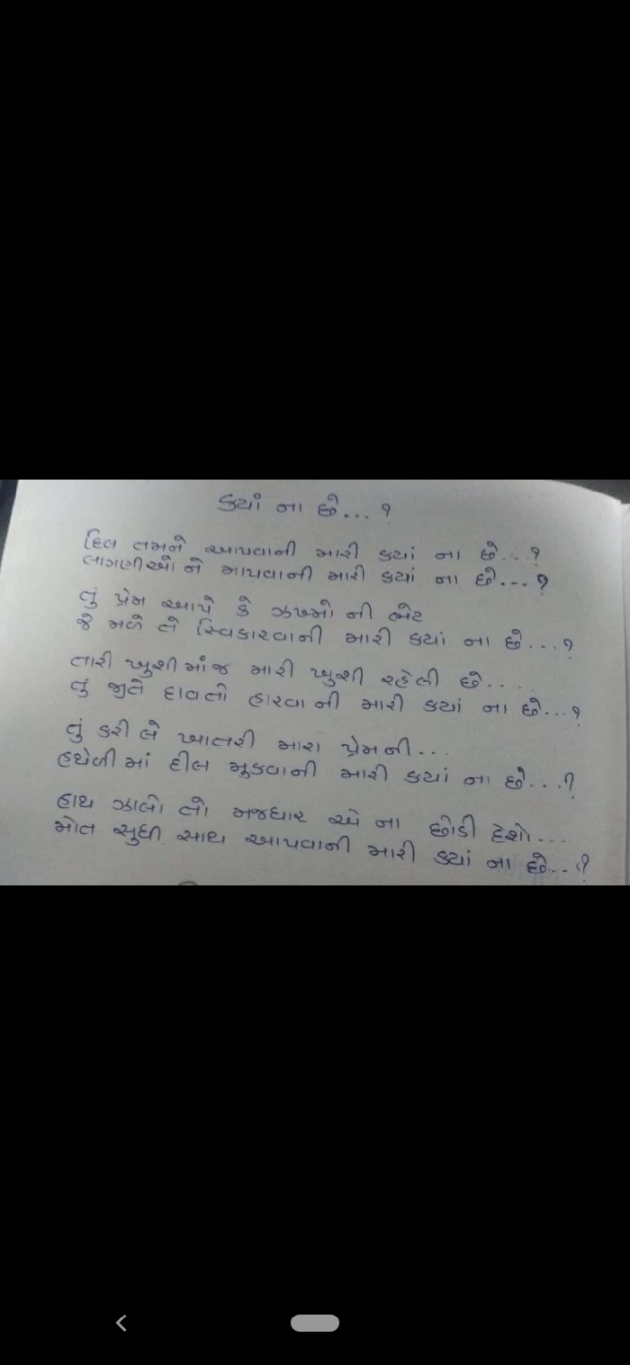 કયાં ના છે...?
દિલ તમને આપવાની મારી કયાં ના છે...?
લાગણીઓ ને માપવાની મારી કયાં ના છે...?
તું પ્રેમ આપે કે ઝખ્મો ની ભેટ
જે મળે તે સ્વિકારવાની મારી કયાં ના છે...?
તારી ખુશી માંજ મારી ખુશી રહેલી છે....
તું જીતે દાવતો હારવા ની મારી કયાં ના છે...?
તું કરી લે ખાતરી મારા પ્રેમ ની...
હથેળી માં દીલ મુકવાની મારી કયાં ના છે...?
હાથ ઝાલો તો મજધાર એ ના છોડી દેશો...
મોત સુધી સાથ આપવાની મારી કયાં ના છે...?